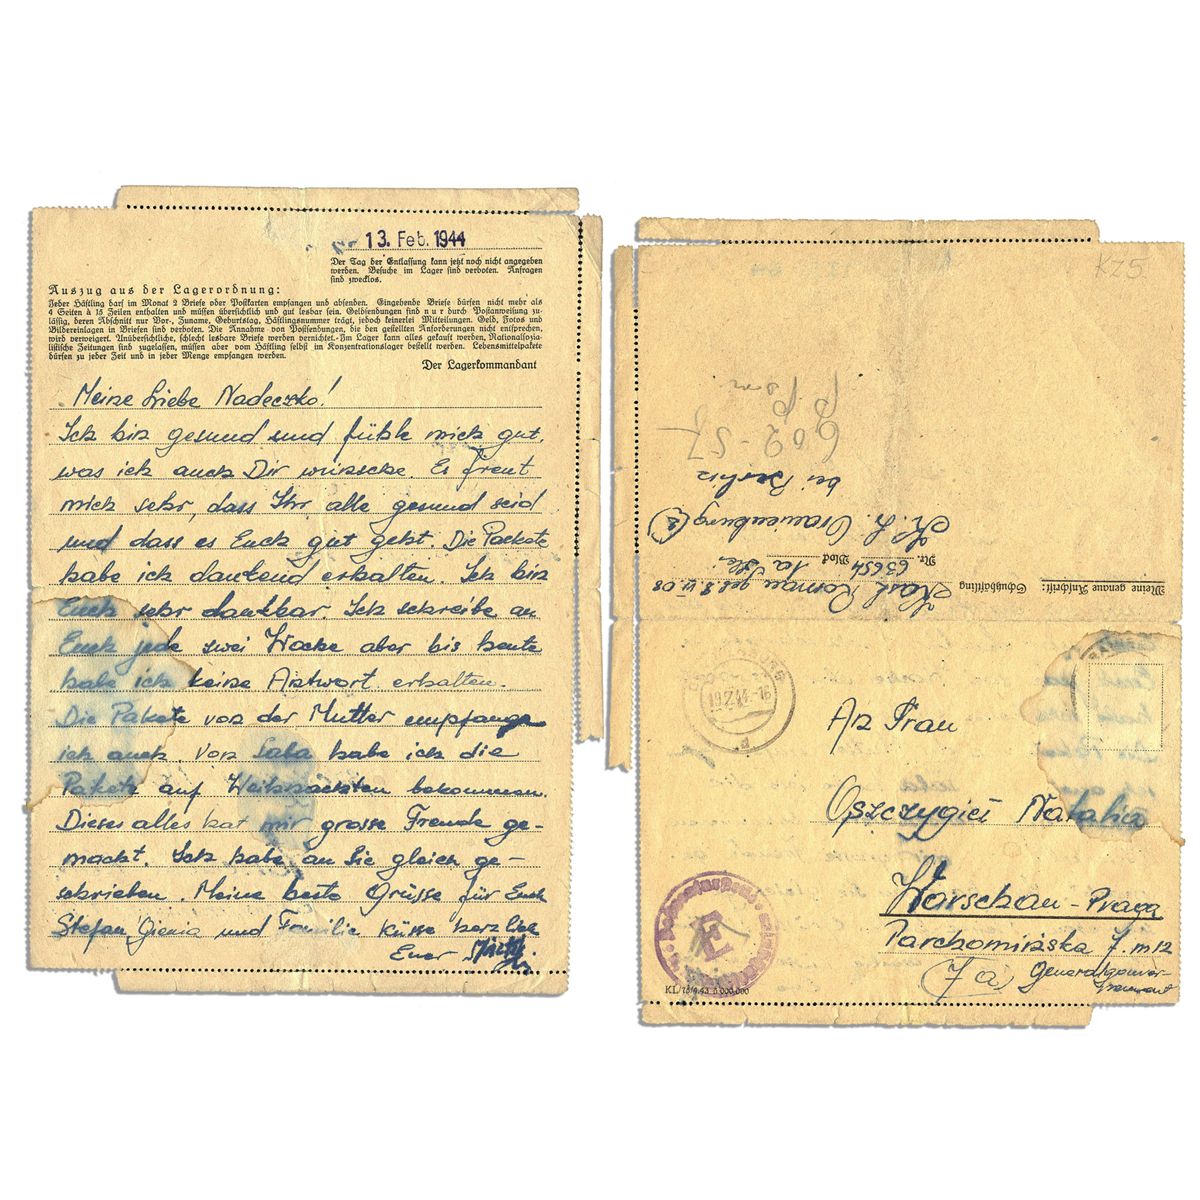 13. Feb. 1944
Der Tag der Entlassung kann jetzt noch nicht angegeben
werden. Besuche im Lager sind verboten. Anfragen
sind zwecklos.
Auszug aus der Lagerordnung:
Jeder Häftling darf im Monat 2 Briefe oder Postkarten empfangen und absenden. Eingehende Briefe dürfen nicht mehr als
4 Seiten à 15 Zeilen enthalten und müssen übersichtlich und gut lesbar sein. Geldsendungen sind nur durch Postanweisung zu-
lässig, deren Abschnitt nur Vor-, Zuname, Geburtstag, Häftlingsnummer trägt, jedoch keinerlei Mitteilungen. Geld, Fotos und
Bildereinlagen in Briefen sind verboten. Die Annahme von Postsendungen, die den gestellten Anforderungen nicht entsprechen,
wird verweigert. Unübersichtliche, schlecht lesbare Briefe werden vernichtet. Im Lager kann alles gekauft werden, Nationalsozia-
listische Zeitungen sind zugelassen, müssen aber vom Häftling selbst im Konzentrationslager bestellt werden. Lebensmittelpakete
dürfen zu jeder Zeit und in jeder Menge empfangen werden.
Der Lagerkommandant
Meine Liebe Nadeczko!
Ich bin gesund und fühle mich gut,
was ich auch Dir wünsche. Es freut
mich sehr, dass Ihr alle gesund seid
und dass es Euch gut geht. Die Packete
habe ich dankend erhalten. Ich bin
Euch sehr dankbar. Ich schreibe an
Euch jede zwei Woche aber bis heute
habe ich keine Antwort erhalten.
Die Pakete von der Mutter empfange
ich auch. Von Lala habe ich die
Pakete auf Weihnachten bekommen.
Dieses alles hat mir grosse Freude ge-
macht. Ich habe an Sie gleich ge-
schrieben. Meine beste Grüsse für Euch
Stefan, Gienia und Familie küsse herzlich
Euer
KZ5.
602-57
bei Berlin
K. L. Oranienburg (2)
Nr. 63654 Block
Meine genaue Anschrift: Schutzhäftling Roman geb. 8 VI. 08
19.2.44.-16
An Frau
Oszczygieł Natalia
Warschau - Praga
Parchomińska 7. m 12
(7a) Generalgouver-
nement
E
KL/75/4.43 5.000.000